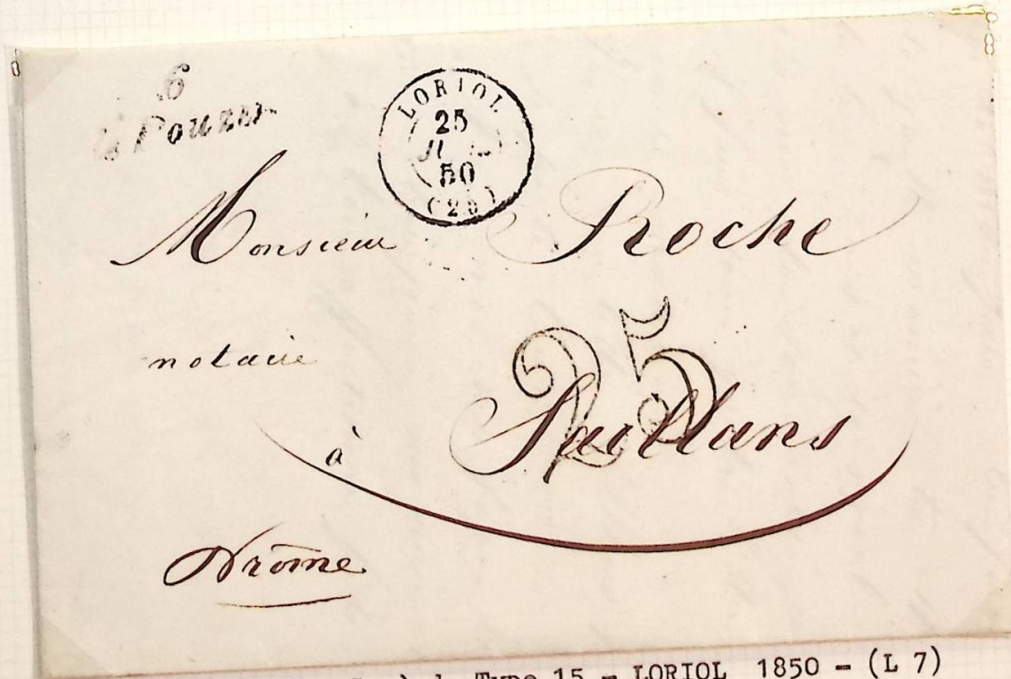 6
le Pouzin
LORIOL
25
50
(25)
Monsieur Roche
notaire
25
à Saillans
Drôme
Type 15 - LORIOL 1850 - (L 7)